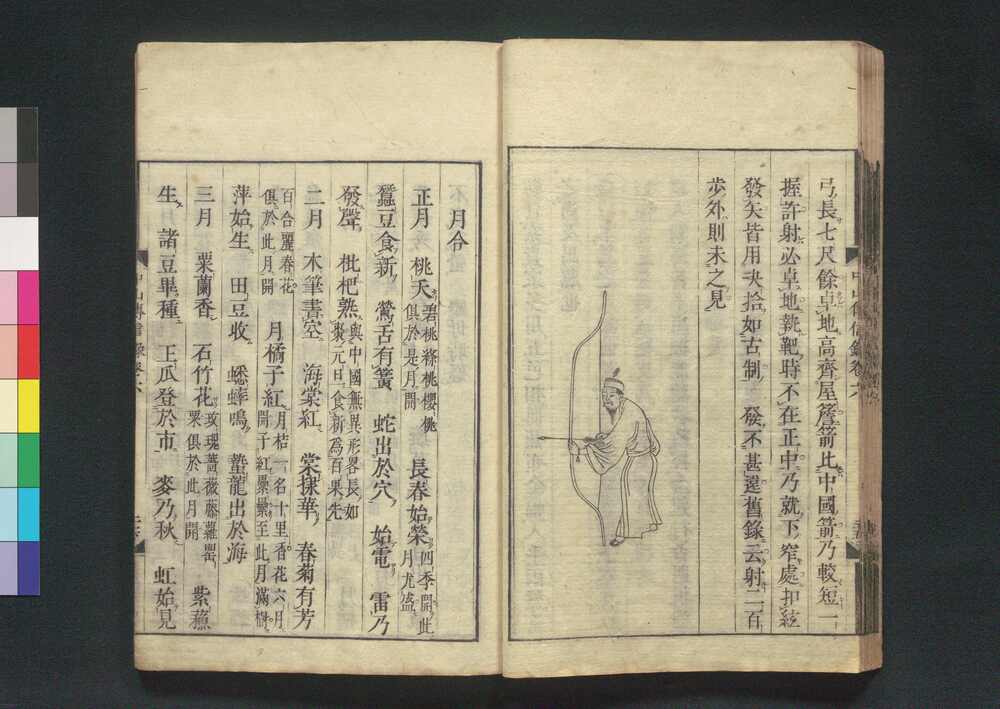 弓長七尺餘卓地高齊屋簷箭比中國箭乃較短一
握許射必卓地執靶時不在正中乃就下窄處扣絃
發矢皆用決拾如古制 發不甚遠舊錄云射二百
步外則未之見
中山傳信錄卷六
月令
正月 桃夭 碧桃絳桃櫻桃
俱於是月開 長春始榮 四季開此
月尤盛
蠶豆食新 鶯舌有簧 蛇出於穴 始電 雷乃
發聲 枇杷熟 與中國無異形畧長如
棗元旦食新爲百果先
二月 木筆書空 海棠紅 棠探華 春菊有芳
百合麗春花
俱於此月開 月橘子紅 月桔一名十里香花六月
開子紅纍纍至此月滿樹
萍始生 田豆收 蟋蟀鳴 蟄龍出於海
三月 粟蘭香 石竹花 玫瑰薔薇藤蘿罌
粟俱於此月開 紫蘇
生 諸豆畢種 王瓜登於市 麥乃秋 虹始見
中山傳信錄卷六